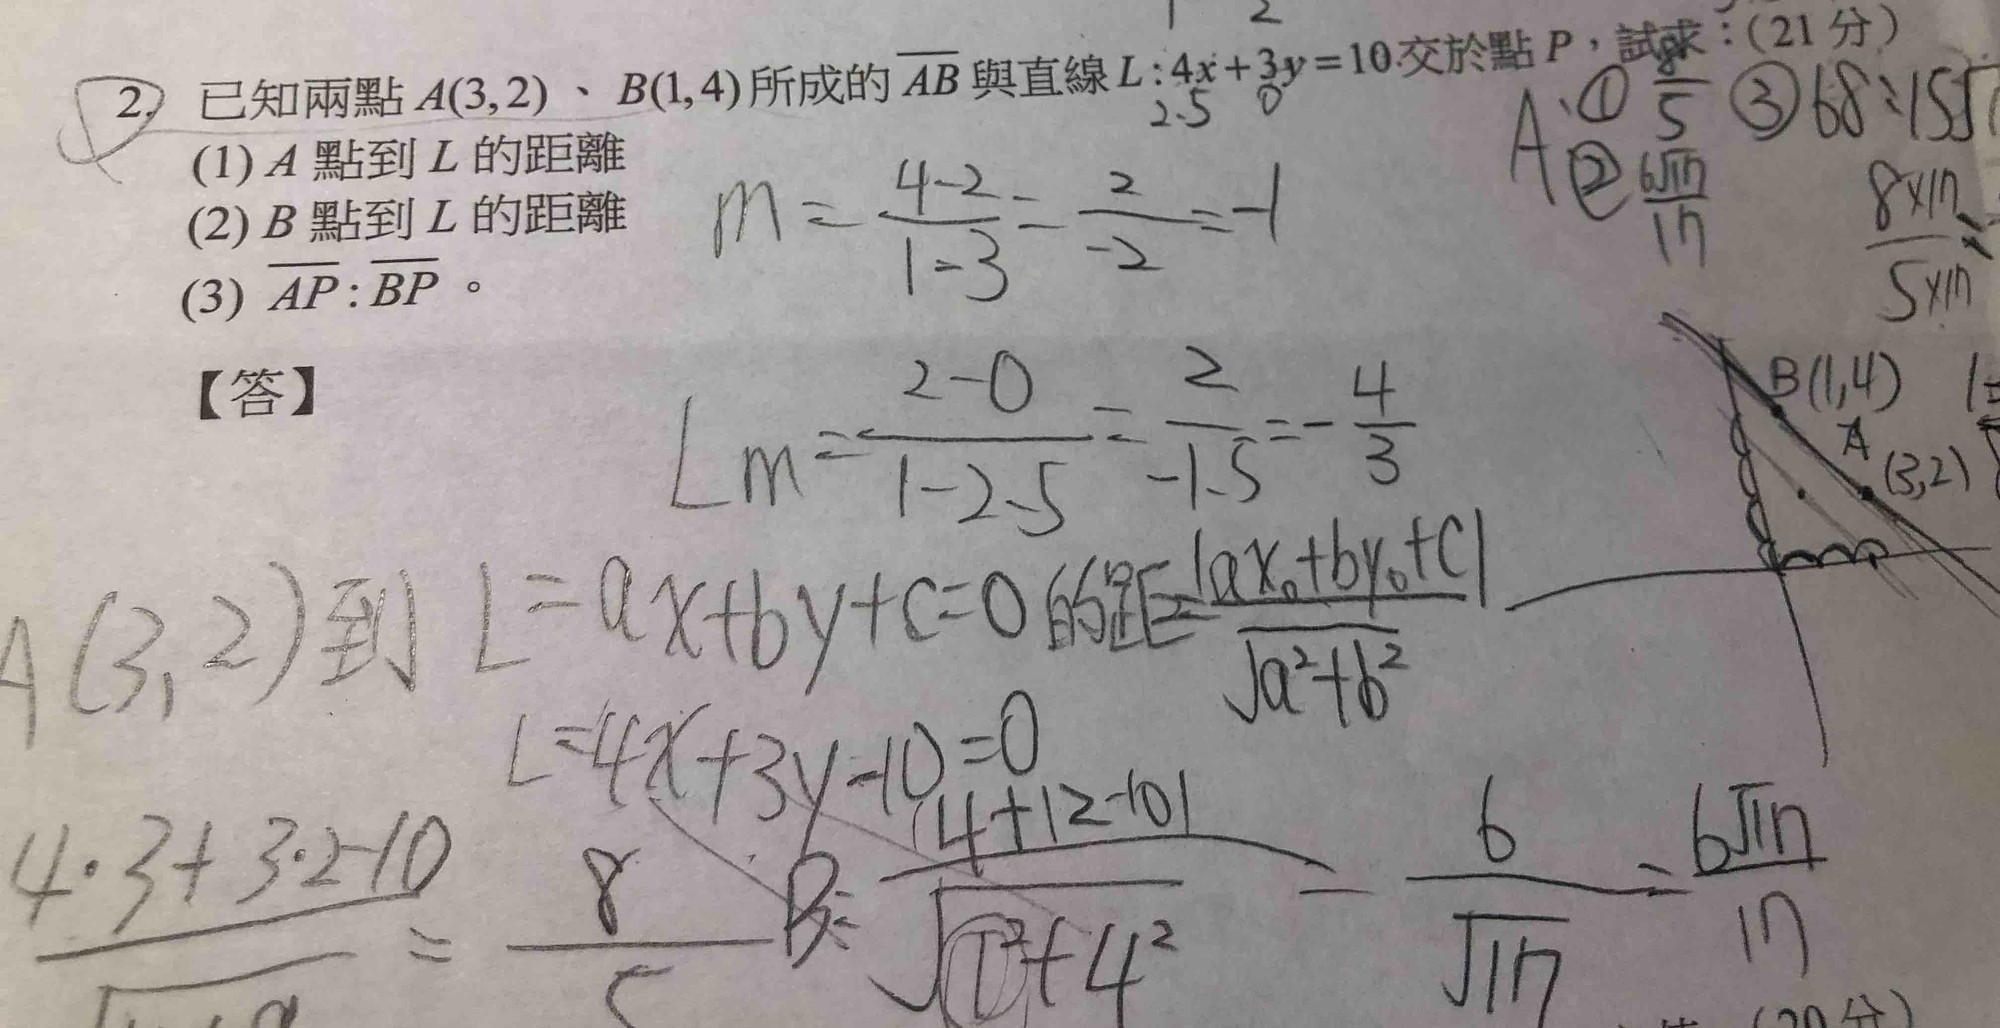 1 2
2. 已知兩點 A(3,2)、B(1,4)所成的 AB 與直線 L:4x+3y=10.交於點 P,試求:(21 分)
2.5 0
(1) A 點到 L 的距離
(2) B 點到 L 的距離
(3) AP:BP。
【答】
A、① 8/5 ③ 68:15√
② 6√17/17
8×17/5×17 :
m = 4-2/1-3 = 2/-2 = -1
Lm = 2-0/1-2.5 = 2/-1.5 = -4/3
B(1,4)
A
(3,2)
A(3,2)到 L=ax+by+c=0 的距=|ax₀+by₀+c|/√a²+b²
L=4x+3y-10=0
4·3+3·2-10/√ = 8/5
B: |4+12-10|/√1²+4² = 6/√17 = 6√17/17
(20分)